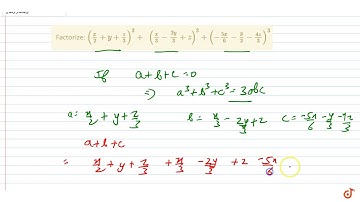 Factorize: (x/2 + y + z/3)^3 + (x/3 − 2y/3 + z)^3 + (−5x/6 − y/3 − 4z/3)^3
If a+b+c=0
⇒ a³+b³+c³=3abc
a= x/2 + y + z/3 b= x/3 − 2y/3 + z c= −5x/6 − y/3 − 4z/3
a+b+c
= x/2 + y + z/3 + x/3 − 2y/3 + z −5x/6